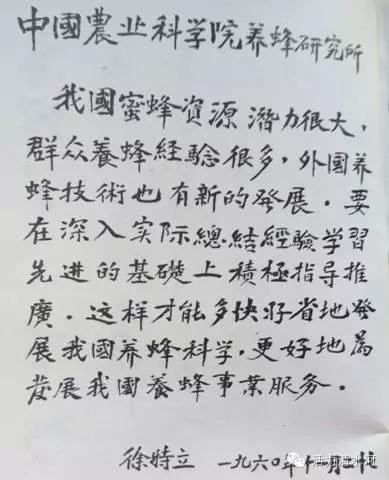 中國農业科学院养蜂研究所
我國蜜蜂資源潛力很大，
群众養蜂経驗很多，外國养
蜂技術也有新的發展．要
在深入实际總結經驗学習
先进的基礎上積極指导推
廣．这样才能多快好省地發
展我國养蜂科学，更好地為
发展我國養蜂事業服务．
徐特立 一九六〇年十一月